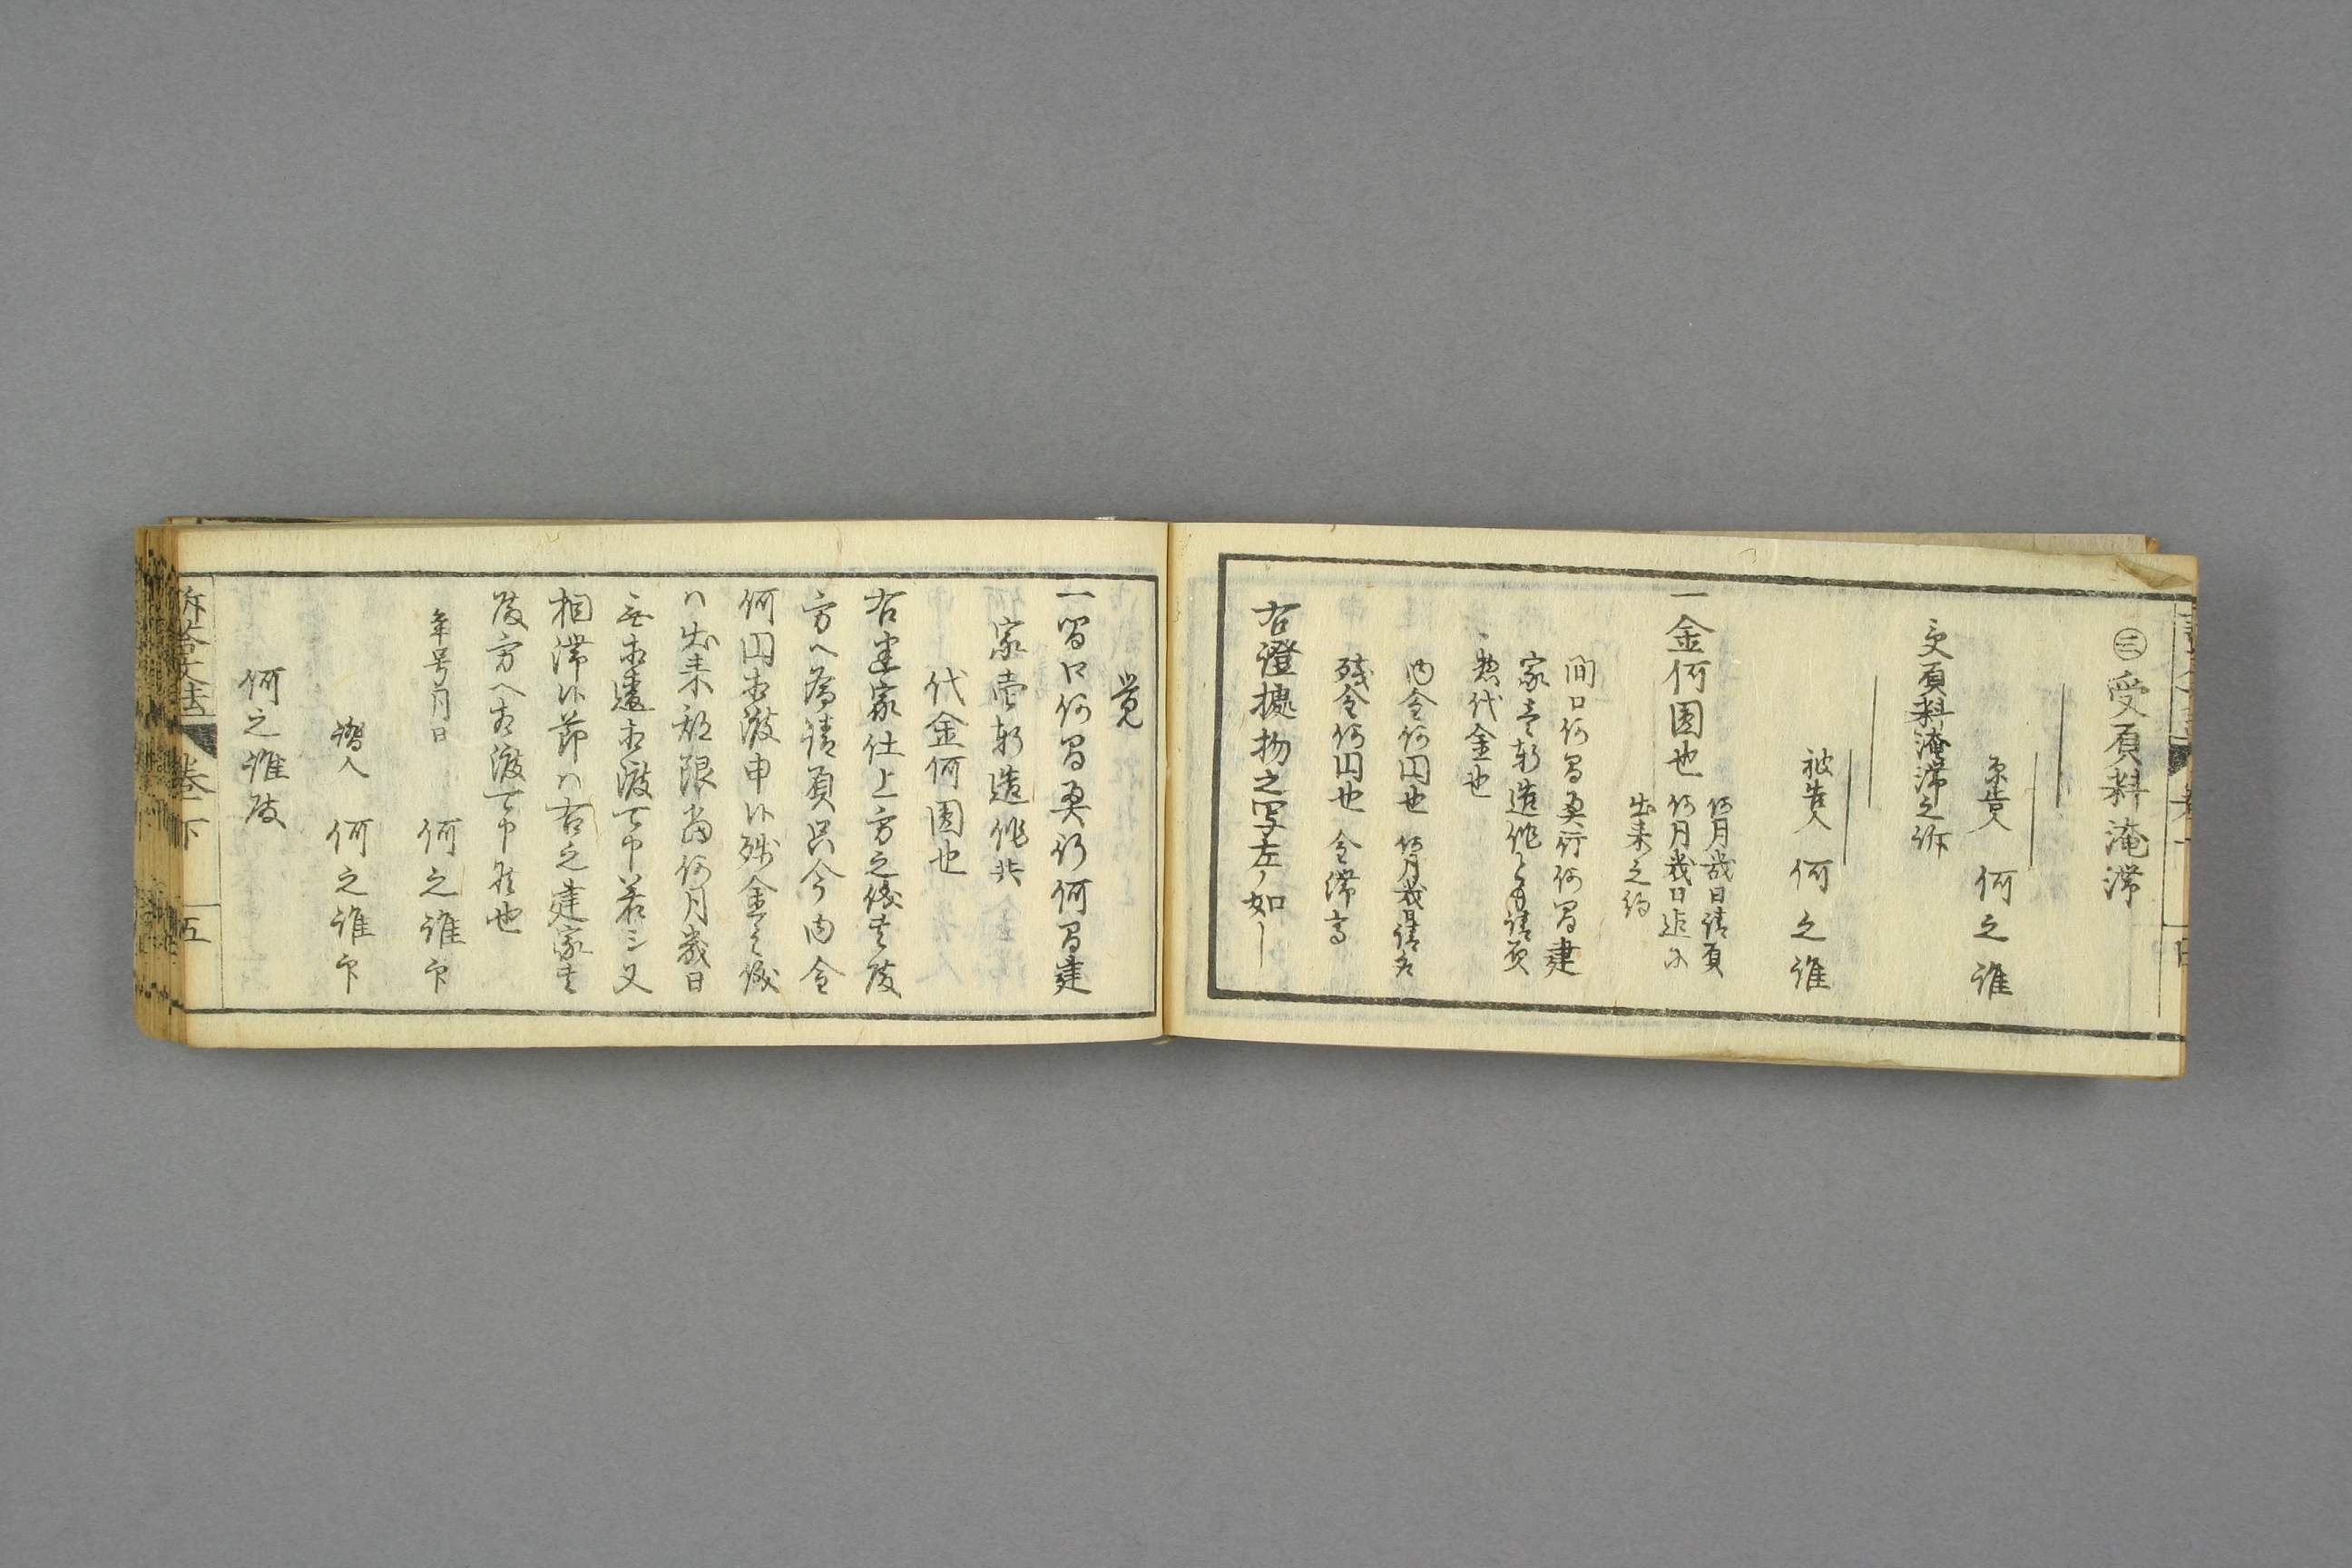 ㊂受負料淹滞
原告人 何之誰
受負料淹滞之訴
被告人 何之誰
一金何圓也
何月幾日請負
何月幾日迄ニ
出来之約
間口何間奥行何間建
家壱軒造作とも請負
惣代金也
内金何円也 何月幾日請取
残金何円也 全滞高
右證據物之写左ノ如し
覚
一間口何間奥行何間建
家壱軒造作共
代金何圓也
右建家仕上方之儀貴殿
方へ為請負只今内金
何円相渡申候残金之儀
ハ出来期限當何月幾日
無相違相渡可申若シ又
相滞候節ハ右之建家貴
殿方へ相渡可申候也
年号月日 何之誰印
證人 何之誰印
何之誰殿
訴答文法 巻下 五